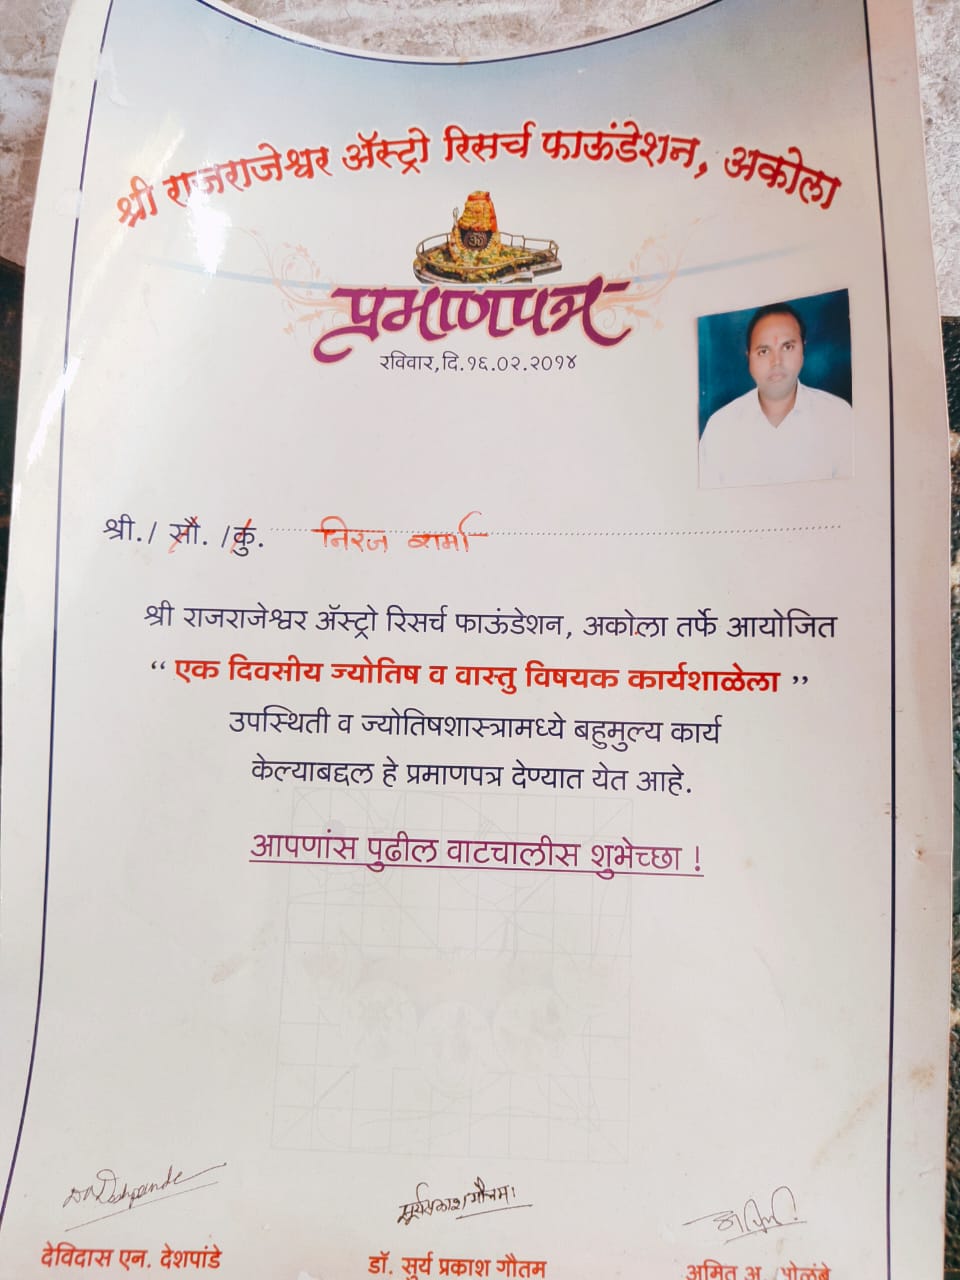 श्री राजराजेश्वर ॲस्ट्रो रिसर्च फाऊंडेशन, अकोला
ॐ
प्रमाणपत्र
रविवार,दि.१६.०२.२०१४
श्री./ सौ. /कु. निरज शर्मा
श्री राजराजेश्वर ॲस्ट्रो रिसर्च फाऊंडेशन, अकोला तर्फे आयोजित
“ एक दिवसीय ज्योतिष व वास्तु विषयक कार्यशाळेला ”
उपस्थिती व ज्योतिषशास्त्रामध्ये बहुमुल्य कार्य
केल्याबद्दल हे प्रमाणपत्र देण्यात येत आहे.
आपणांस पुढील वाटचालीस शुभेच्छा !
सूर्यप्रकाश गौतमः
देविदास एन. देशपांडे डॉ. सुर्य प्रकाश गौतम अमित अ.